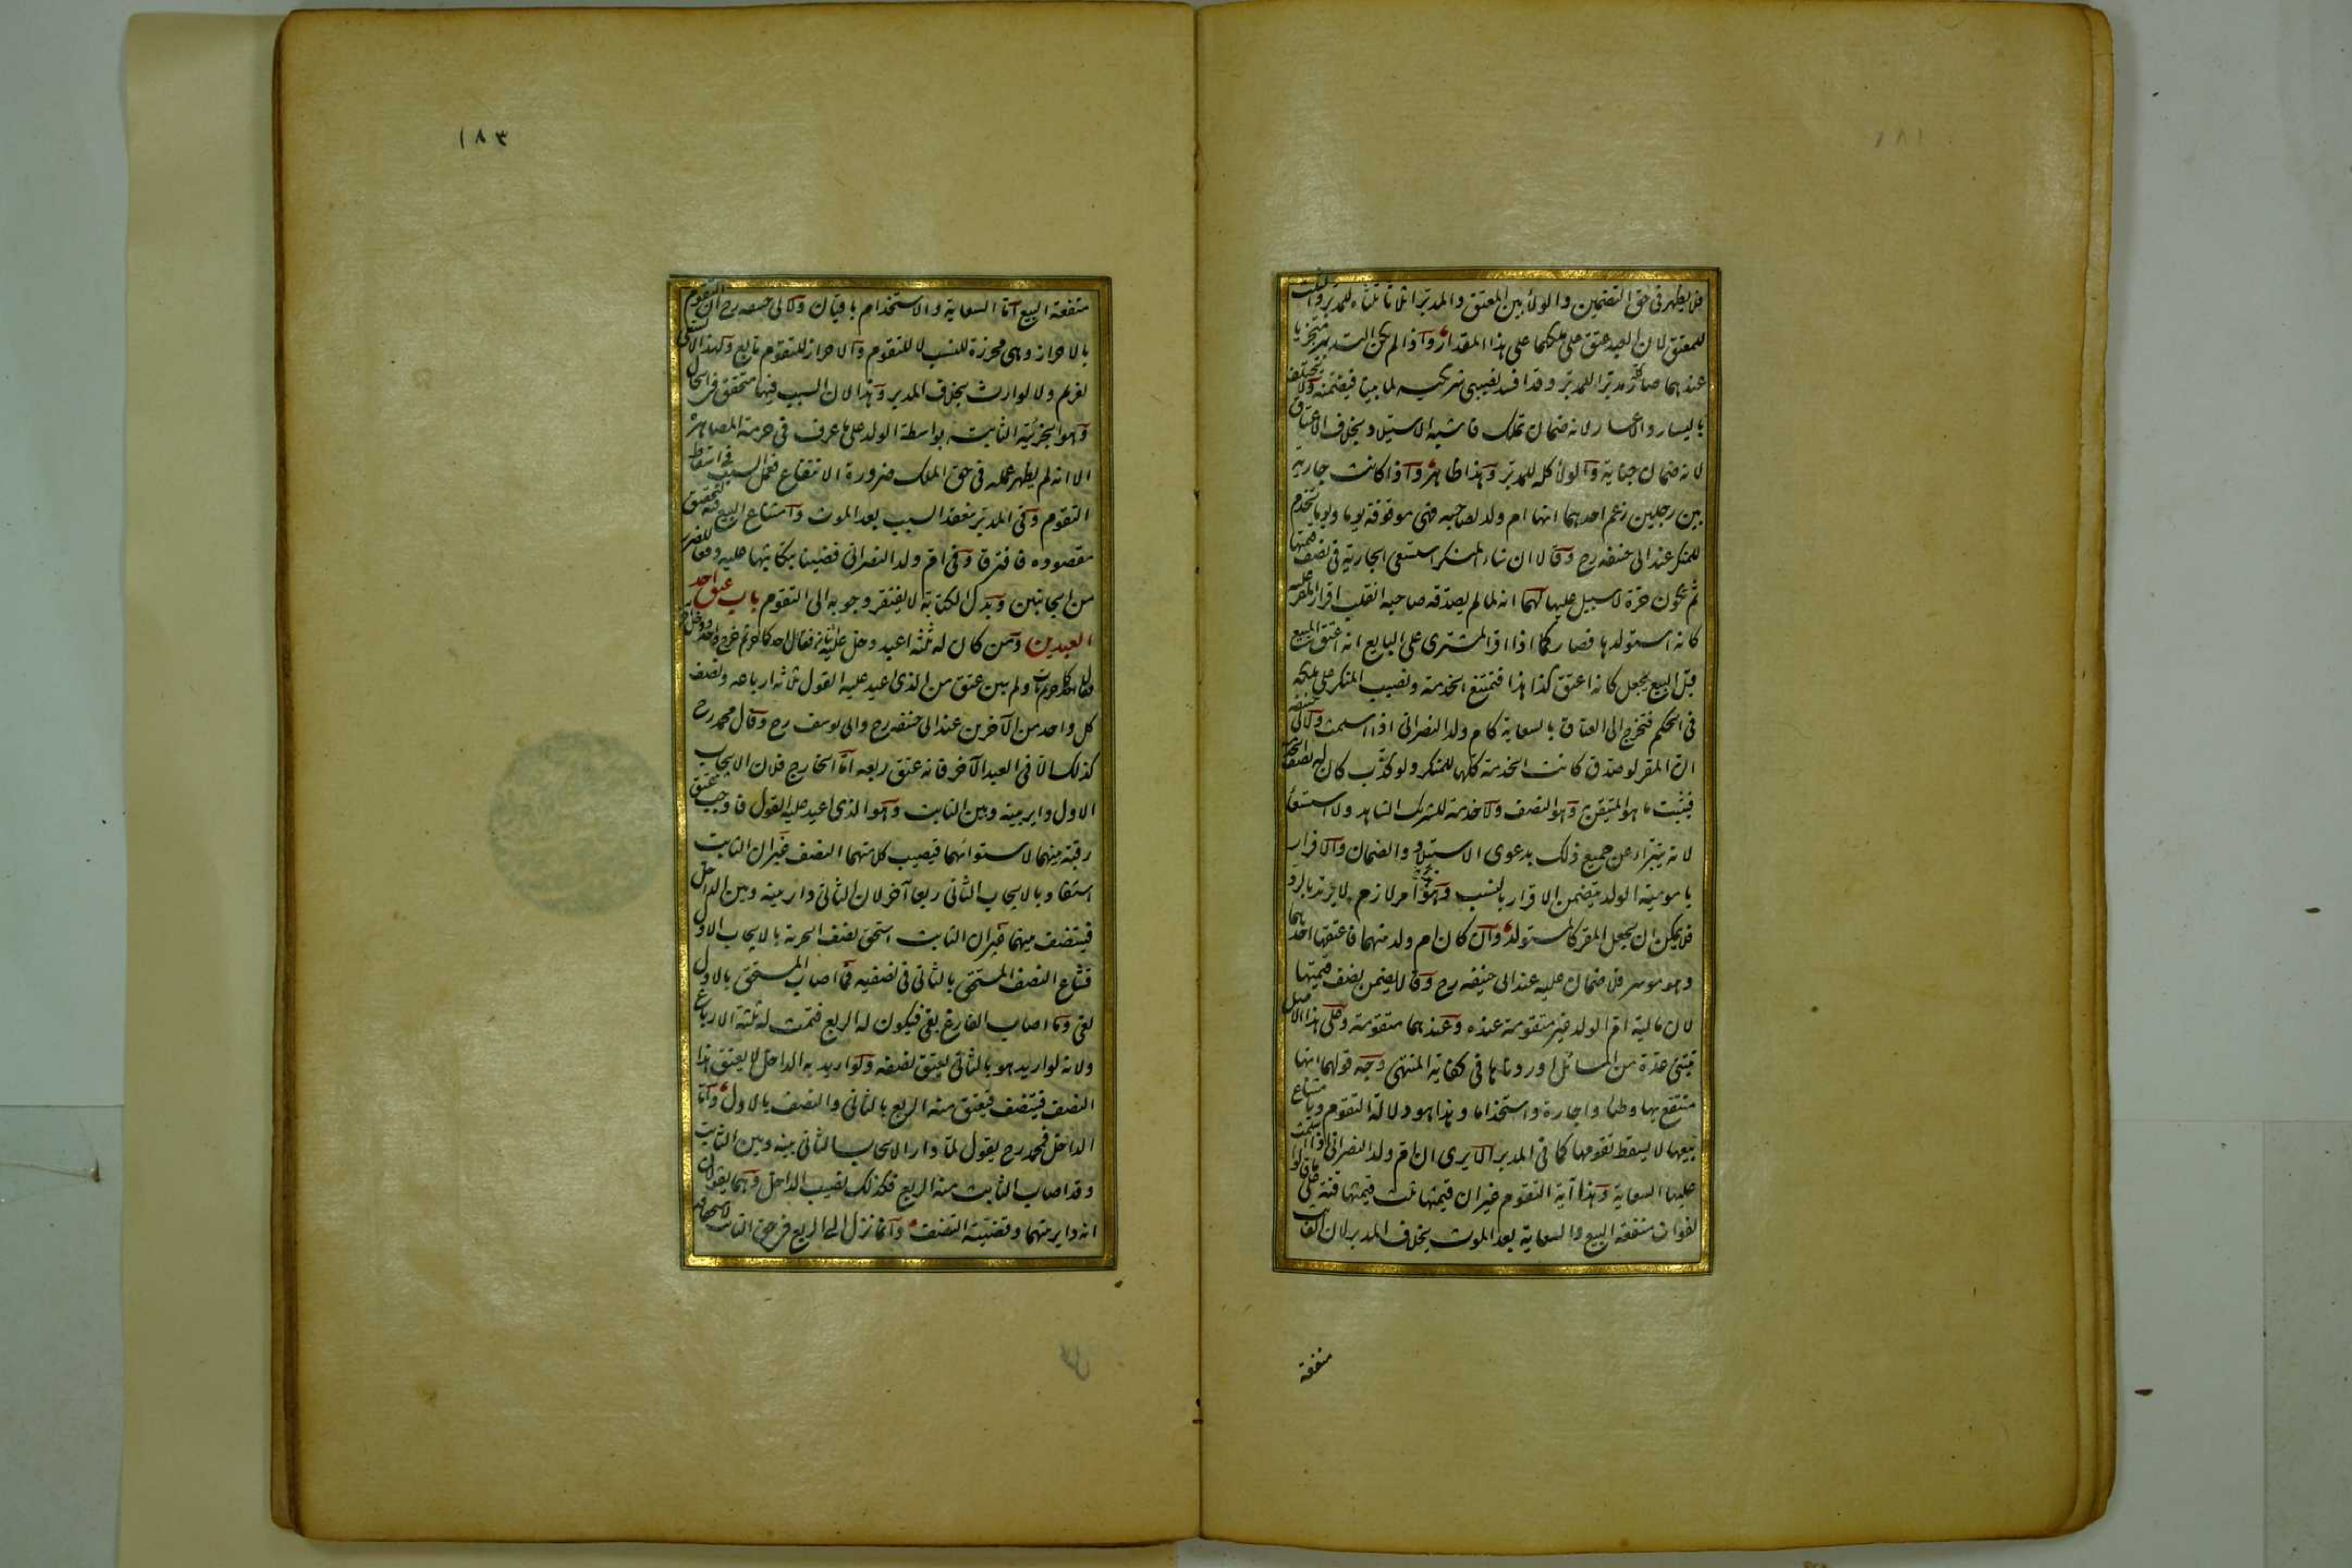 ١٨١
فلا يظهر فى حق التضمين والولاء بين المعتق والمدبر اثلاثا ثلثاه للمدبر والثلث
للمعتق لان العبد عتق على ملكهما على هذا المقدار واذا لم يكن التدبير متجزيا
عندهما صار كله مدبرا للمدبر وقد افسد نصيب شريكه لما بينا فيضمنه ولا يختلف
باليسار والاعسار لانه ضمان تملك فاشبه الاستيلاد بخلاف الاعتاق
لانه ضمان جناية والولاء كله للمدبر وهذا ظاهر واذا كانت جارية
بين رجلين زعم احدهما انها ام ولد لصاحبه فهى موقوفة يوما ويوما تخدم
للمنكر عند ابى حنيفه رح وقالا ان شاء المنكر استسعى الجارية فى نصف قيمتها
ثم يكون حرة لا سبيل عليها لهما انه لما لم يصدقه صاحبه انقلب اقرار المقر عليه
كانه استولدها فصار كما اذا اقر المشترى على البايع انه اعتق المبيع
قبل البيع يجعل كانه اعتق كذا هذا فتمتنع الخدمة ونصيب المنكر على ملكه
فى الحكم فتخرج الى العتاق بالسعاية كام ولد النصرانى اذا اسلمت ولابى حنيفه
ان المقر لو صدق كانت الخدمة كلها للمنكر ولو كذب كان له نصف الخدمة
فيثبت ما هو المتيقن وهو النصف ولا خدمة للشريك الشاهد ولا استسعاء
لانه يتبراء عن جميع ذلك بدعوى الاستيلاد والضمان والاقرار
بامومية الولد يتضمن الاقرار بالنسب وهو امر لازم لا يرتد بالرد
فلا يمكن ان يجعل المقر كالمستولد وان كان ام ولد منهما فاعتقها احدهما
وهو موسر فلا ضمان عليه عند ابى حنيفه رح وقالا يضمن نصف قيمتها
لان مالية ام الولد غير متقومة عنده وعندهما متقومة وعلى هذا الاصل
تبتنى عدة من المسائل اوردناها فى كفاية المنتهى وجه قولهما انها
منتفع بها وطئا واجارة واستخداما وهذا هو دلالة التقوم وبامتناع
بيعها لا يسقط تقومها كما فى المدبر الا يرى ان ام ولد النصرانى اذا اسلمت
عليها السعاية وهذا آية التقوم غير ان قيمتها ثلث قيمتها قنة على ما قالوا
لفوات منفعة البيع والسعاية بعد الموت بخلاف المدبر لان الفائت
منفعة
١٨٣
منفعة البيع اما السعاية والاستخدام باقيان ولابى حنيفه رح ان التقوم
بالاحراز وهى محرزة للنسب لا للتقوم والاحراز للتقوم تابع ولهذا لا تسعى
لغريم ولا لوارث بخلاف المدبر وهذا لان السبب فيها متحقق فى الحال
وهو الجزئية الثابتة بواسطة الولد على ما عرف فى حرمة المصاهرة
الا انه لم يظهر عمله فى حق الملك ضرورة الانتفاع فعمل السبب فى اسقاط
التقوم وفى المدبر ينعقد السبب بعد الموت وامتناع البيع فيه لتحقيق
مقصوده فافترقا وفى ام ولد النصرانى قضينا بتكاتبها عليه دفعا للضرر
من الجانبين وبدل الكتابة لا يفتقر وجوبه الى التقوم باب عتق احد
العبدين ومن كان له ثلثه اعبد دخل عليه اثنان فقال احدكما حر ثم خرج واحد ودخل آخر
فقال احدكما حر ثم مات ولم يبين عتق من الذى اعيد عليه القول ثلاثه ارباعه ونصف
كل واحد من الآخرين عند ابى حنيفه رح وابى يوسف رح وقال محمد رح
كذلك الا فى العبد الآخر فانه عتق ربعه اما الخارج فلان الايجاب
الاول داير بينه وبين الثابت وهو الذى اعيد عليه القول فاوجب عتق
رقبة بينهما لاستوائهما فيصيب كلا منهما النصف غير ان الثابت
استفاد بالايجاب الثانى ربعا آخر لان الثانى داير بينه وبين الداخل
فيتنصف بينهما غير ان الثابت استحق نصف الحرية بالايجاب الاول
فشاع النصف المستحق بالثانى فى نصفيه فما اصاب المستحق بالاول
لغى وما اصاب الفارغ بقى فيكون له الربع فتمت له ثلثة الارباع
ولانه لو اريد هو بالثانى يعتق نصفه ولو اريد به الداخل لا يعتق هذا
النصف فيتنصف فيعتق منه الربع بالثانى والنصف بالاول واما
الداخل فمحمد رح يقول لما دار الايجاب الثانى بينه وبين الثابت
وقد اصاب الثابت منه الربع فكذلك نصيب الداخل وهما يقولان
انه داير بينهما وقضيته التنصيف وانما نزل الى الربع فى حق الثابت لاستحقاقه